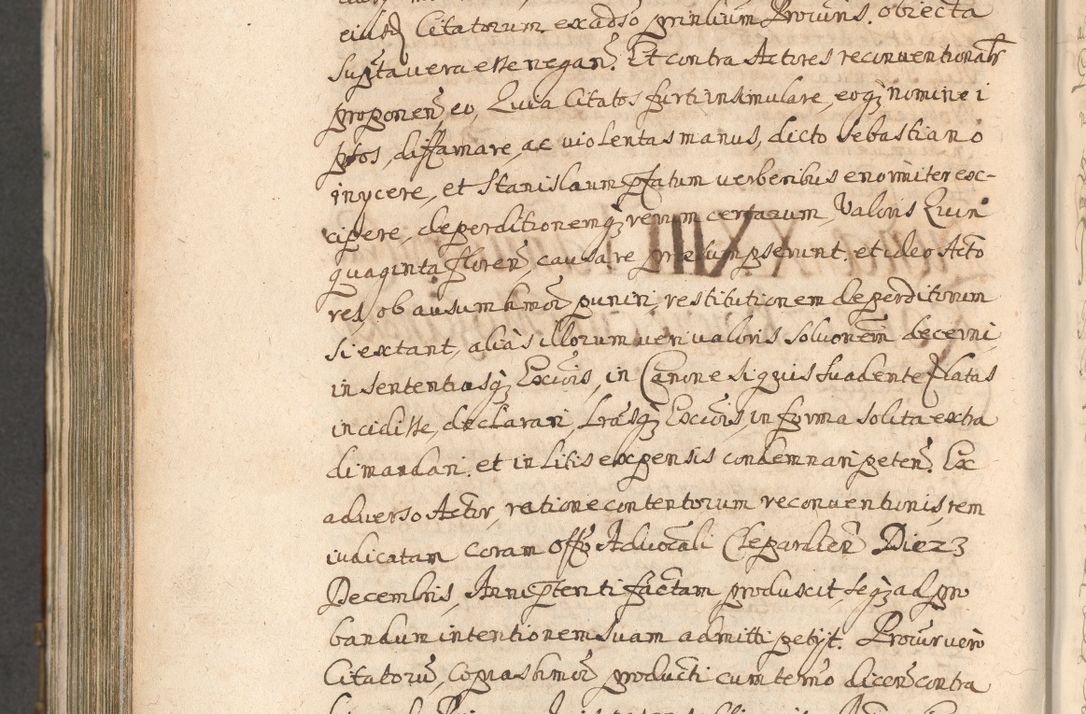 eiusd Citatorum ex adso prinlium Procuris. obiecta
supta vera esse negan. Et contra Actores reconventionalr
proponen, eo, Quia Citatos furti insimulare, eoqz nomine i
ptos, diffamare, ac violentas manus, dicto Sebastiano
inycere, et Stanislaum pfatum verberibus enormiter ex-
cipere, deperditionemqz rerum certarum, Valoris Quin
quaginta floren, causare praesumpserunt. et ideo Acto
res, ob ausum hmoi puniri, restitutionem deperditorum
si extant, alias illorum veri valoris solutionem decerni,
in sententiasqz Excois, in Canone Siquis suadente latas
incidisse, declarari, Lrasqz Excois, in forma solita extra
di mandari. et in litis expensis condemnari peten. Ex
adverso Actor, ratione contentorum reconventionis, rem
iudicatam coram Offo Advocali Clepardien Die 23
Decembris, Anni pttenti factam produxit, seqz ad pro
bandum intentionem suam admitti petyt. Procur vero
Citatoru, Copias hmoi producti cum termo dicen contra